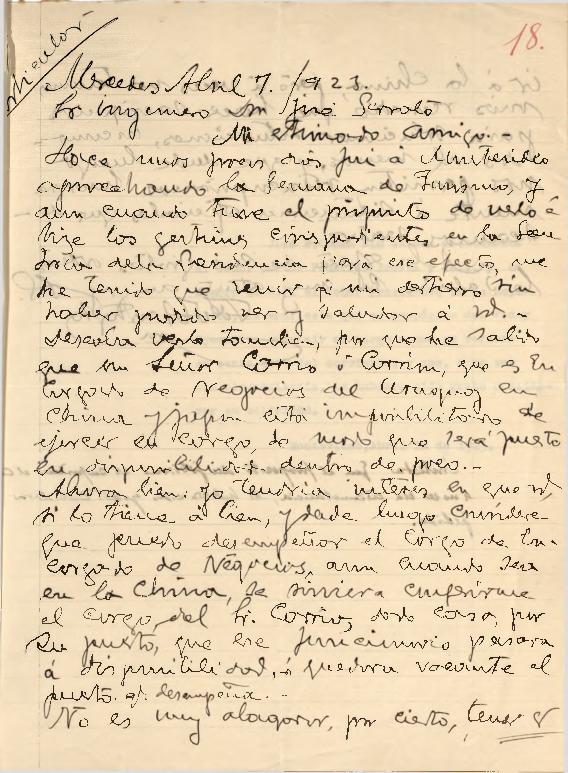 18.
Mercedes Abril 7./923.
Sr Ingeniero Dn José Serrato
Mi estimado amigo. -
Hace unos pocos dias, fui á Montevideo
aprovechando la Semana de Turismo, y
aun cuando tuve el propósito de verlo é
hice los gestiones correspondientes en la Secre
taria de la Presidencia para ese efecto, me
he tenido que venir á mi destierro sin
haber podido ver y saludar á Vd. -
Deseaba verlo tambien, por que he sabido
que un Señor Corrio ó Corrim, que es En
cargado de Negocios del Uruguay en
China y Japon está imposibilitado de
ejercer su cargo, de modo que será puesto
en disponibilidad dentro de poco. -
Ahora bien: yo tendria interés en que Vd,
si lo tiene á bien, y desde luego considere
que puedo desempeñar el cargo de En
cargado de Negocios, aun cuando sea
en la China, se sirviera conferirme
el cargo del Sr. Corrio, dado caso, por
su puesto, que ese funcionario pasara
á disponibilidad, ó quedara vacante el
puesto q. desempeña. -
No es muy alagador, por cierto, tener q